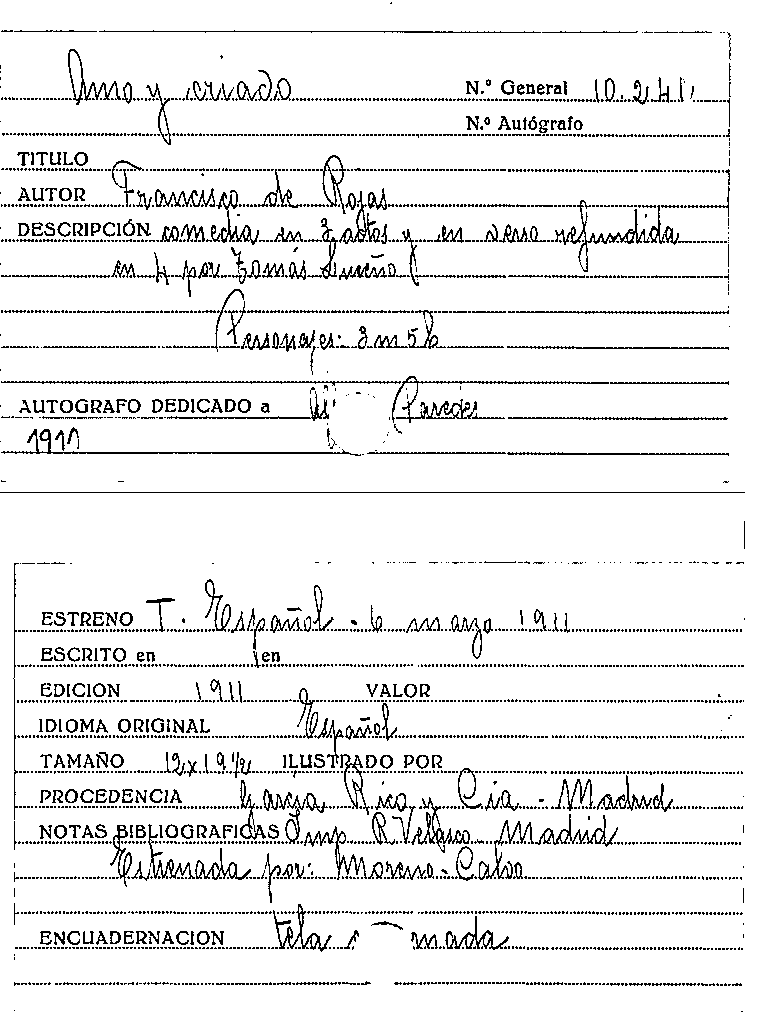 Amo y criado
N.º General 10.241
N.º Autógrafo
TITULO
AUTOR Francisco de Rojas
DESCRIPCIÓN comedia en 3 actos y en verso refundida
en 4 por Tomás Luceño
Personajes: 3 m 5 h
AUTOGRAFO DEDICADO a Paredes
1911
ESTRENO T. Español - 6 marzo 1911
ESCRITO en en
EDICION 1911 VALOR
IDIOMA ORIGINAL Español
TAMAÑO 12x19½ ILUSTRADO POR
PROCEDENCIA García Rico y Cia - Madrid
NOTAS BIBLIOGRAFICAS Imp R Velasco Madrid
Estrenada por: Moreno - Calvo
ENCUADERNACION tela